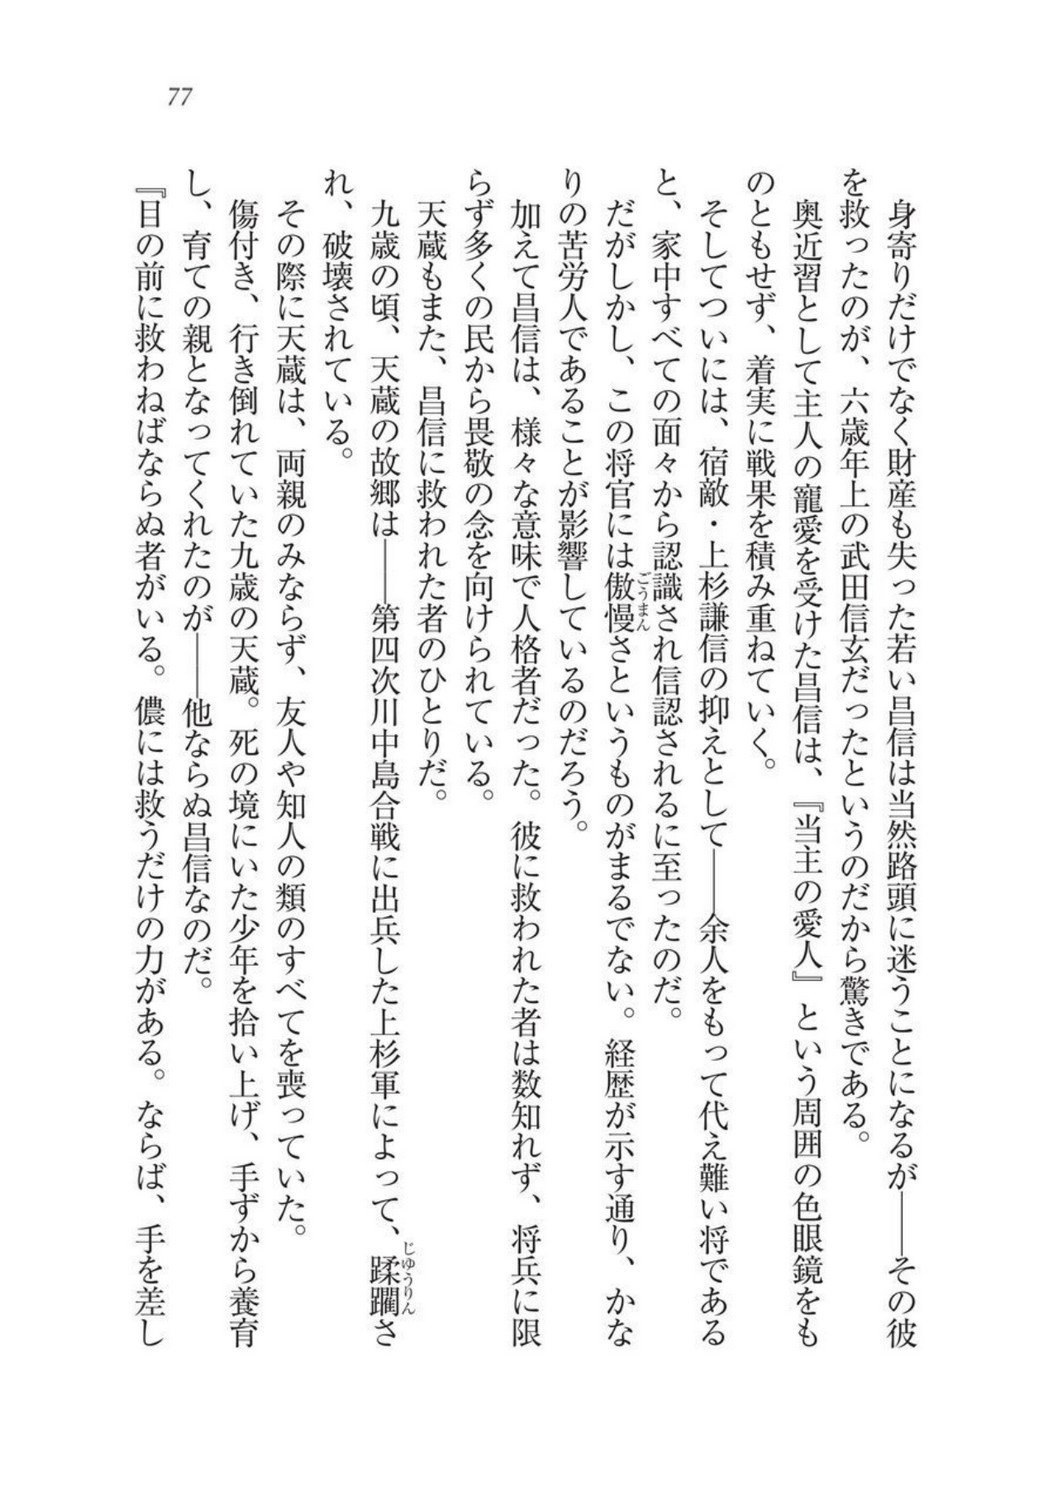 77
身寄りだけでなく財産も失った若い昌信は当然路頭に迷うことになるが――その彼
を救ったのが、六歳年上の武田信玄だったというのだから驚きである。
奥近習として主人の寵愛を受けた昌信は、『当主の愛人』という周囲の色眼鏡をも
のともせず、着実に戦果を積み重ねていく。
そしてついには、宿敵・上杉謙信の抑えとして――余人をもって代え難い将である
と、家中すべての面々から認識され信認されるに至ったのだ。
だがしかし、この将官には傲慢さというものがまるでない。経歴が示す通り、かな
ごうまん
りの苦労人であることが影響しているのだろう。
加えて昌信は、様々な意味で人格者だった。彼に救われた者は数知れず、将兵に限
らず多くの民から畏敬の念を向けられている。
天蔵もまた、昌信に救われた者のひとりだ。
九歳の頃、天蔵の故郷は――第四次川中島合戦に出兵した上杉軍によって、蹂躙さ
じゆうりん
れ、破壊されている。
その際に天蔵は、両親のみならず、友人や知人の類のすべてを喪っていた。
傷付き、行き倒れていた九歳の天蔵。死の境にいた少年を拾い上げ、手ずから養育
し、育ての親となってくれたのが――他ならぬ昌信なのだ。
『目の前に救わねばならぬ者がいる。儂には救うだけの力がある。ならば、手を差し